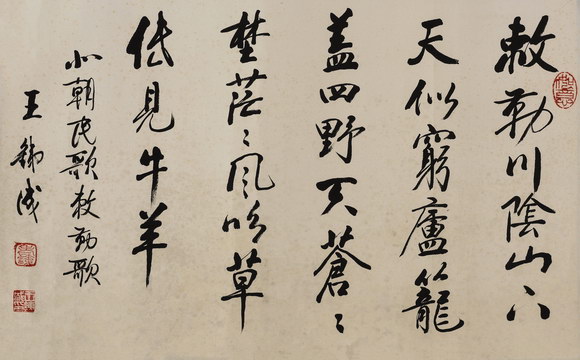 敕勒川陰山下
天似窮廬籠
蓋四野天蒼〻
埜茫〻風吹草
低見牛羊
北朝民歌敕勒歌
王
成